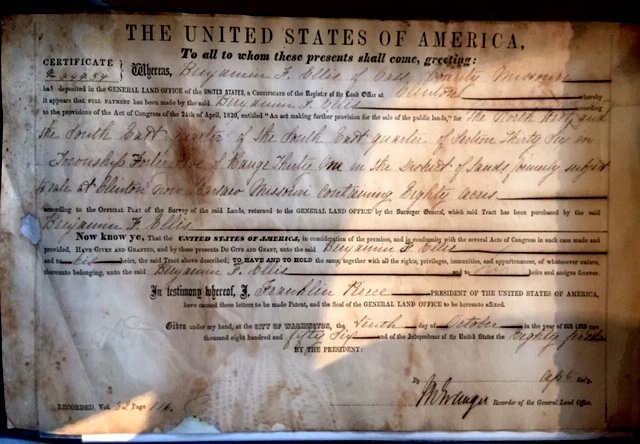 THE UNITED STATES OF AMERICA,
To all to whom these presents shall come, greeting:
CERTIFICATE
No.
Whereas, Benjamin F. Ellis of Cass County Missouri
has deposited in the GENERAL LAND OFFICE of the UNITED STATES, a Certificate of the Register of the Land Office at Clinton whereby
it appears that FULL PAYMENT has been made by the said Benjamin F. Ellis according
to the provisions of the Act of Congress of the 24th of April, 1820, entitled "An act making further provision for the sale of the public lands," for the North and
the South East quarter of the South East quarter of Section Thirty Six in
Township of Range Thirty One in the District of Lands subject
to sale at Clinton Missouri containing Eighty acres
according to the OFFICIAL PLAT of the Survey of the said Lands, returned to the GENERAL LAND OFFICE by the Surveyor General, which said Tract has been purchased by the said
Benjamin F. Ellis
Now know ye, That the UNITED STATES OF AMERICA, in consideration of the premises, and in conformity with the several Acts of Congress in such case made and
provided, HAVE GIVEN AND GRANTED, and by these presents DO GIVE AND GRANT, unto the said Benjamin F. Ellis
and to his heirs, the said Tract above described; TO HAVE AND TO HOLD the same, together with all the rights, privileges, immunities, and appurtenances, of whatsoever nature,
thereunto belonging, unto the said Benjamin F. Ellis and to his heirs and assigns forever.
In testimony whereof, I, Franklin Pierce PRESIDENT OF THE UNITED STATES OF AMERICA,
have caused these letters to be made Patent, and the Seal of the GENERAL LAND OFFICE to be hereunto affixed.
Given under my hand, at the CITY OF WASHINGTON, the tenth day of October in the year of OUR LORD one
thousand eight hundred and fifty Six and of the Independence of the United States the Eighty first
BY THE PRESIDENT:
By Sec'y.
RECORDED, Vol. Page Recorder of the General Land Office.